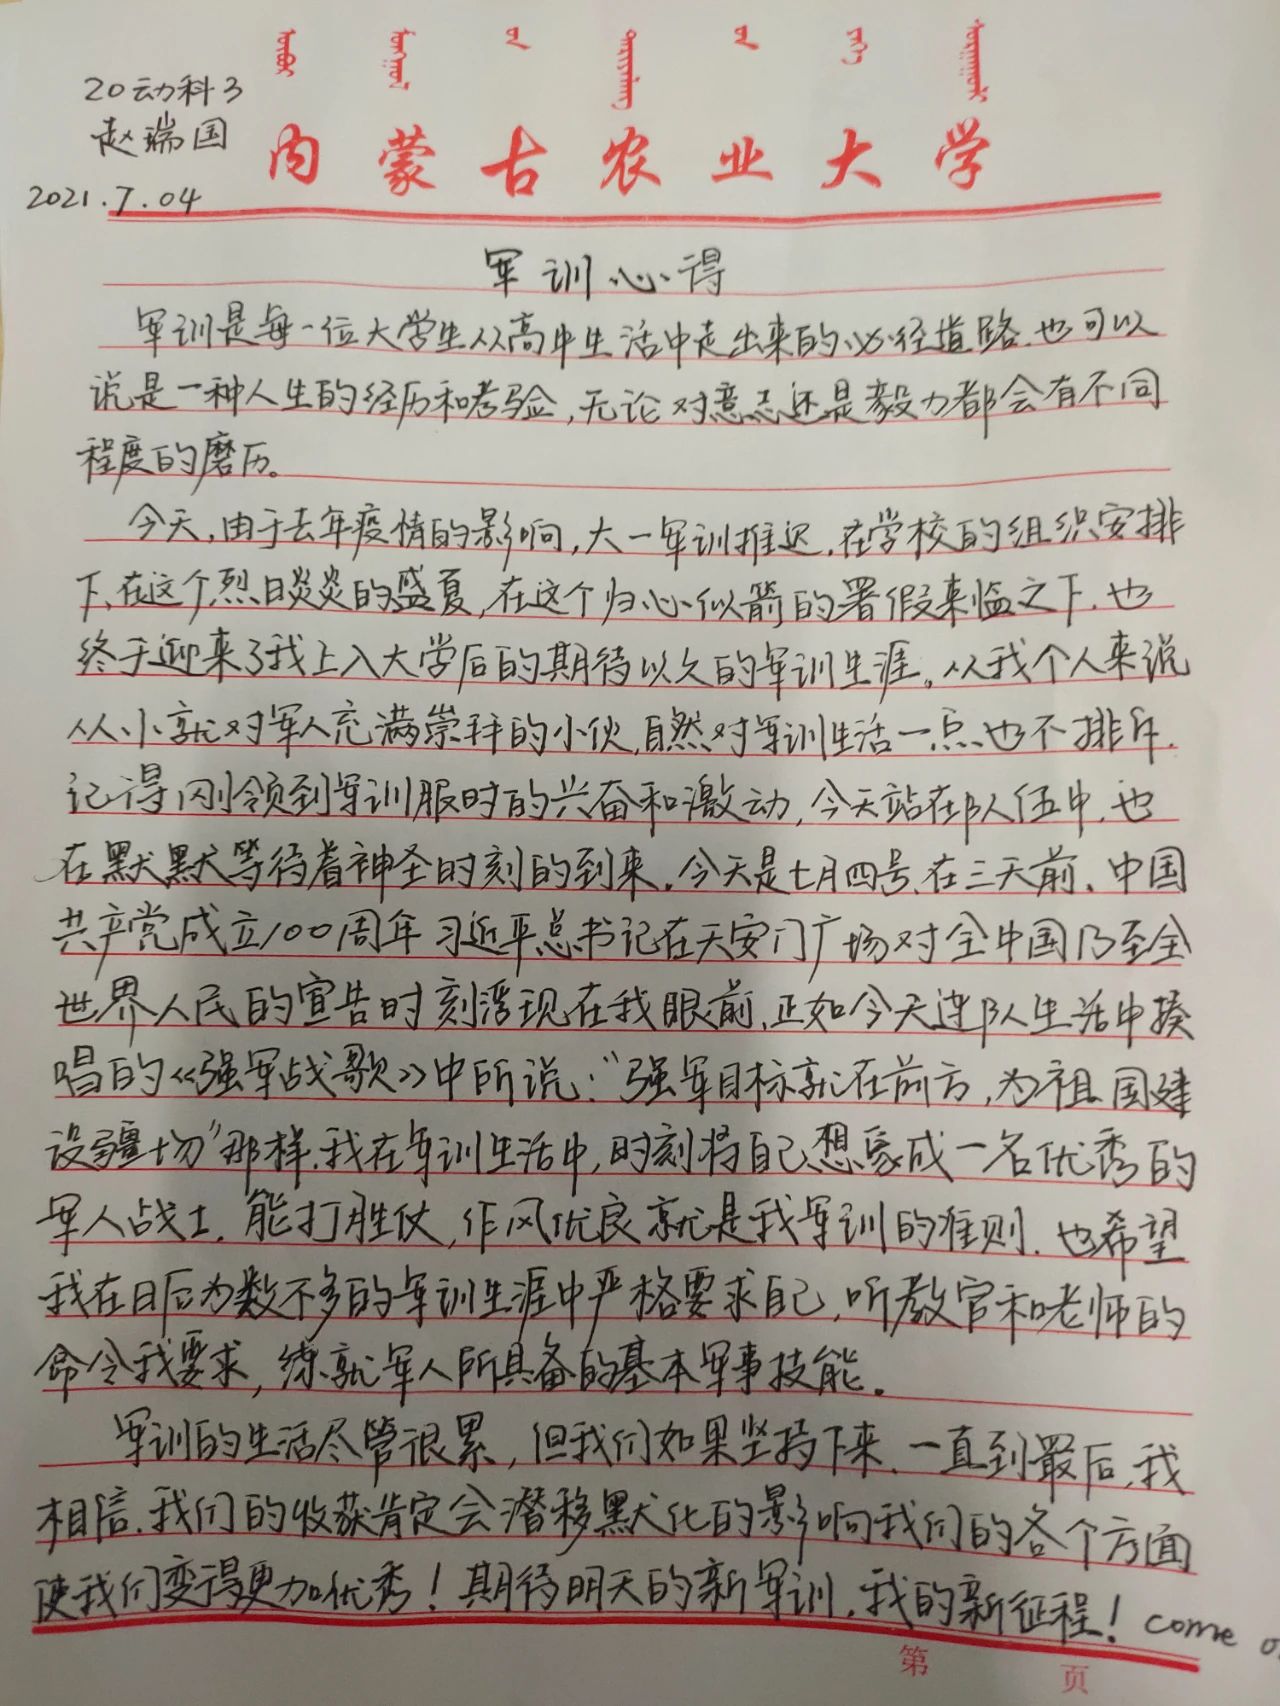 20动科3
赵瑞国
2021.7.04
内蒙古农业大学
军训心得
军训是每一位大学生从高中生活中走出来的必经道路.也可以
说是一种人生的经历和考验,无论对意志还是毅力都会有不同
程度的磨历。
今天,由于去年疫情的影响,大一军训推迟,在学校的组织安排
下,在这个烈日炎炎的盛夏,在这个归心似箭的署假来临之下,也
终于迎来了我上入大学后的期待以久的军训生涯。从我个人来说
从小就对军人充满崇拜的小伙,自然对军训生活一点也不排斥.
记得刚领到军训服时的兴奋和激动,今天站在队伍中,也
在默默等待着神圣时刻的到来.今天是七月四号,在三天前.中国
共产党成立100周年习近平总书记在天安门广场对全中国乃至全
世界人民的宣告时刻浮现在我眼前,正如今天连队生活中揍
唱的《强军战歌》中所说:“强军目标就在前方,为祖国建
设疆场”那样.我在军训生活中,时刻将自己想象成一名优秀的
军人战士.能打胜仗,作风优良就是我军训的准则.也希望
我在日后为数不多的军训生涯中严格要求自己,听教官和老师的
命令我要求,练就军人所具备的基本军事技能.
军训的生活尽管很累,但我们如果坚持下来.一直到最后,我
相信.我们的收获肯定会潜移默化的影响我们的各个方面
使我们变得更加优秀!期待明天的新军训,我的新征程!come
第 页